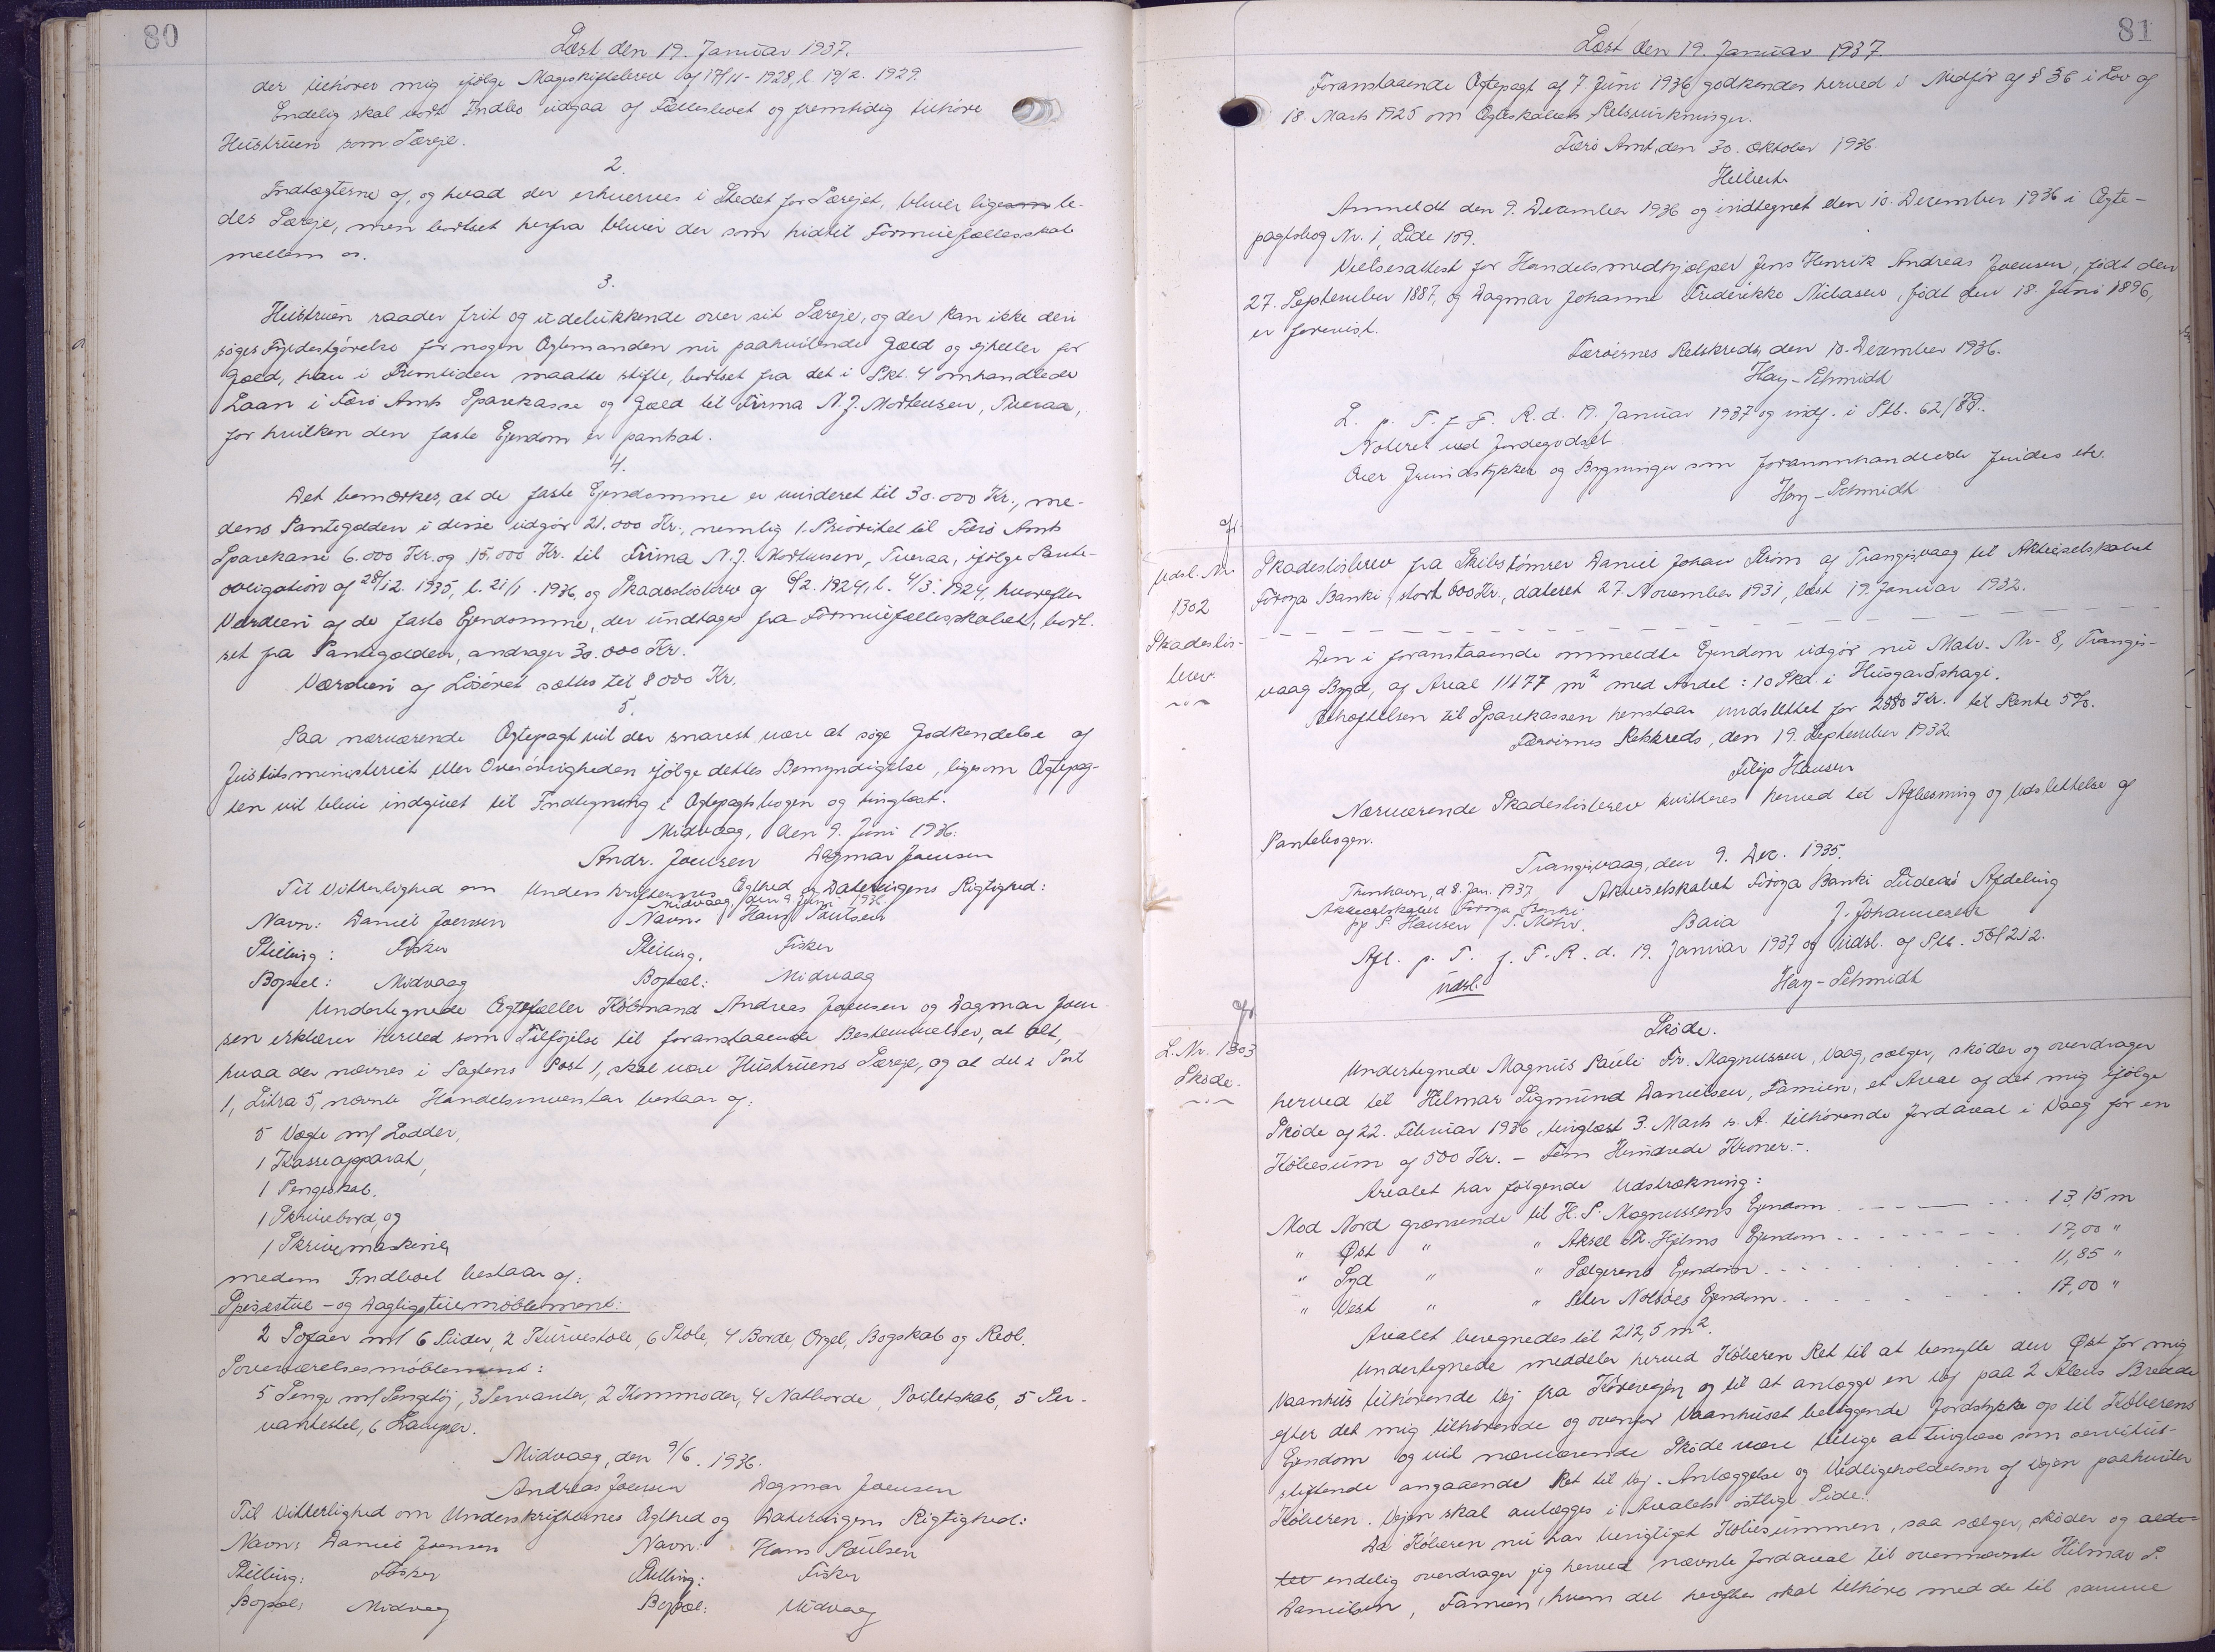 80
Læst den 19. Januar 1937.
der tilhører mig ifølge Mageskiftebrev af 17/11-1928, l. 19/2. 1929.
Endelig skal vort Indbo udgaa af Fællesboet og fremtidig tilhøre
Hustruen som Særeje.
2.
Indtægterne af, og hvad der erhverves i Stedet for Særejet, bliver ligesom le-
des Særeje, men bortset herfra bliver der som hidtil Formuefællesskab
mellem os.
3.
Hustruen raader frit og udelukkende over sit Særeje, og der kan ikke deri
søges Fyldestgørelse for nogen Ægtemanden nu paahvilende Gæld og ejheller for
Gæld, han i Fremtiden maatte stifte, bortset fra det i Pkt. 4 omhandlede
Laan i Færø Amts Sparekasse og Gæld til Firma N. J. Mortensen, Tveraa,
for hvilken den faste Ejendom er pantsat.
4.
Det bemærkes, at de faste Ejendomme er vurderet til 30.000 Kr., me-
dens Pantegælden i disse udgør 21.000 Kr., nemlig 1. Prioritet til Færø Amts
Sparekasse 6.000 Kr. og 15.000 Kr. til Firma N. J. Mortensen, Tveraa, ifølge Pante-
obligation af 28/12. 1935, l. 21/1. 1936, og Skadesløsbrev af 6/2. 1924, l. 4/3. 1924, hvorefter
Værdien af de faste Ejendomme, der undtages fra Formuefællesskabet, bort-
set fra Pantegælden, andrager 30.000 Kr.
Værdien af Løsøret sættes til 8000 Kr.
5.
Paa nærværende Ægtepagt vil der snarest være at søge Godkendelse af
Justitsministeriet eller Overøvrigheden ifølge dettes Bemyndigelse, ligesom Ægtepag-
ten vil blive indgivet til Indtegning i Ægtepagtsbogen og tinglæst.
Midvaag, den 9. Juni 1936.
Andr. Joensen Dagmar Joensen
Til Vitterlighed om Underskrifternes Ægthed og Dateringens Rigtighed:
Midvaag, den 9. Juni 1936.
Navn: Daniel Joensen Navn: Hans Poulsen
Stilling: Fisker Stilling: Fisker
Bopæl: Midvaag Bopæl: Midvaag
Undertegnede Ægtefæller Købmand Andreas Joensen og Dagmar Joen-
sen erklærer herved som Tilføjelse til foranstaaende Bestemmelser, at alt,
hvad der nævnes i Pagtens Post 1, skal være Hustruens Særeje, og at det i Post
1, Litra 5, nævnte Handelsinventar bestaar af:
5 Vægte m/ Lodder,
1 Kasseapparat,
1 Pengeskab,
1 Skrivebord, og
1 Skrivemaskine,
medens Indboet bestaar af:
Spisestue- og Dagligstuemøblement:
2 Sofaer m/ 6 Puder, 2 Kurvestole, 6 Stole, 4 Borde, Orgel, Bogskab og Reol.
Soveværelsesmøblement:
5 Senge m/ Sengetøj, 3 Servanter, 2 Kommoder, 4 Natborde, Toiletskab, 5 Ser-
vantestel, 6 Lamper.
Midvaag, den 9/6. 1936.
Andreas Joensen Dagmar Joensen
Til Vitterlighed om Underskrifternes Ægthed og Dateringens Rigtighed:
Navn: Daniel Joensen Navn: Hans Poulsen
Stilling: Fisker Stilling: Fisker
Bopæl: Midvaag Bopæl: Midvaag
81
Læst den 19. Januar 1937.
Foranstaaende Ægtepagt af 7. Juni 1936 godkendes herved i Medfør af § 36 i Lov af
18. Marts 1925 om Ægteskabets Retsvirkninger.
Færø Amt, den 30. Oktober 1936.
Hilbert
Anmeldt den 9. December 1936 og indtegnet den 10. December 1936 i Ægte-
pagtsbog Nr. 1, Side 109.
Vielsesattest for Handelsmedhjælper Jens Henrik Andreas Joensen, født den
27. September 1887, og Dagmar Johanne Frederikke Niclasen, født den 18. Juni 1896,
er forevist.
Færøernes Retskreds, den 10. December 1936.
Hay-Schmidt
L. p. T. f. F. R. d. 19. Januar 1937 og indf. i Ptb. 62/79.
Noteret ved Jordegodset.
Over Grundstykker og Bygninger som foranomhandlede findes etc.
Hay-Schmidt
Udsl. Nr.
1302
Skadesløs-
brev.
Skadesløsbrev fra Skibstømrer Daniel Johan Strøm af Trangisvaag til Aktieselskabet
Føroya Banki, stort 600 Kr., dateret 27. November 1931, læst 19. Januar 1932.
Den i foranstaaende ommeldte Ejendom udgør nu Matr. Nr. 8, Trangis-
vaag Bygd, af Areal 1177 m² med Andel: 10 Skd. i Husgardshagi.
Behæftelsen til Sparekassen henstaar uudslettet for 2880 Kr. til Rente 5%.
Færøernes Retskreds, den 19. September 1932.
Filip Hansen
Nærværende Skadesløsbrev kvitteres herved til Aflæsning og Udslettelse af
Pantebogen.
Trangisvaag, den 9. Dec. 1935.
Thorshavn, d. 8. Jan. 1937 Aktieselskabet Føroya Banki Suderø Afdeling
Aktieselskabet Føroya Banki
pp P. Hansen / S. Mohr. Baia J. Johannesen
Afl. p. T. f. F. R. d. 19. Januar 1937 og udsl. af Ptb. 58/212.
Udsl. Hay-Schmidt
L. Nr. 1303
Skøde.
Skøde.
Undertegnede Magnus Pauli Fr. Magnussen, Vaag, sælger, skøder og overdrager
herved til Hilmar Sigmund Danielsen, Famien, et Areal af det mig ifølge
Skøde af 22. Februar 1936, tinglæst 3. Marts s. A. tilhørende Jordareal i Vaag for en
Købesum af 500 Kr. - Fem Hundrede Kroner -.
Arealet har følgende Udstrækning:
Mod Nord grænsende til H. P. Magnussens Ejendom 13,15 m
" Øst " " Aksel Th. Hjelms Ejendom 17,00 "
" Syd " " Sælgerens Ejendom 11,85 "
" Vest " " Peter Nolsøes Ejendom 17,00 "
Arealet beregnedes til 212,5 m².
Undertegnede meddeler herved Køberen Ret til at benytte den Øst for mig
Vaanhus tilhørende Vej fra Kørevejen og til at anlægge en Vej paa 2 Meters Bredde
efter det mig tilhørende og ovenfor Vaanhuset beliggende Jordstykke op til Køberens
Ejendom og vil nærværende Skøde være tillige at tinglæse som servitut-
stiftende angaaende Ret til Vej. Anlæggelse og Vedligeholdelsen af Vejen paahviler
Køberen. Vejen skal anlægges i Arealets østlige Side.
Da Køberen nu har berigtiget Købesummen, saa sælger, skøder og
endelig overdrager jeg herved nævnte Jordareal til ovennævnte Hilmar S.
Danielsen, Famien, hvem det herefter skal tilhøre med de til samme